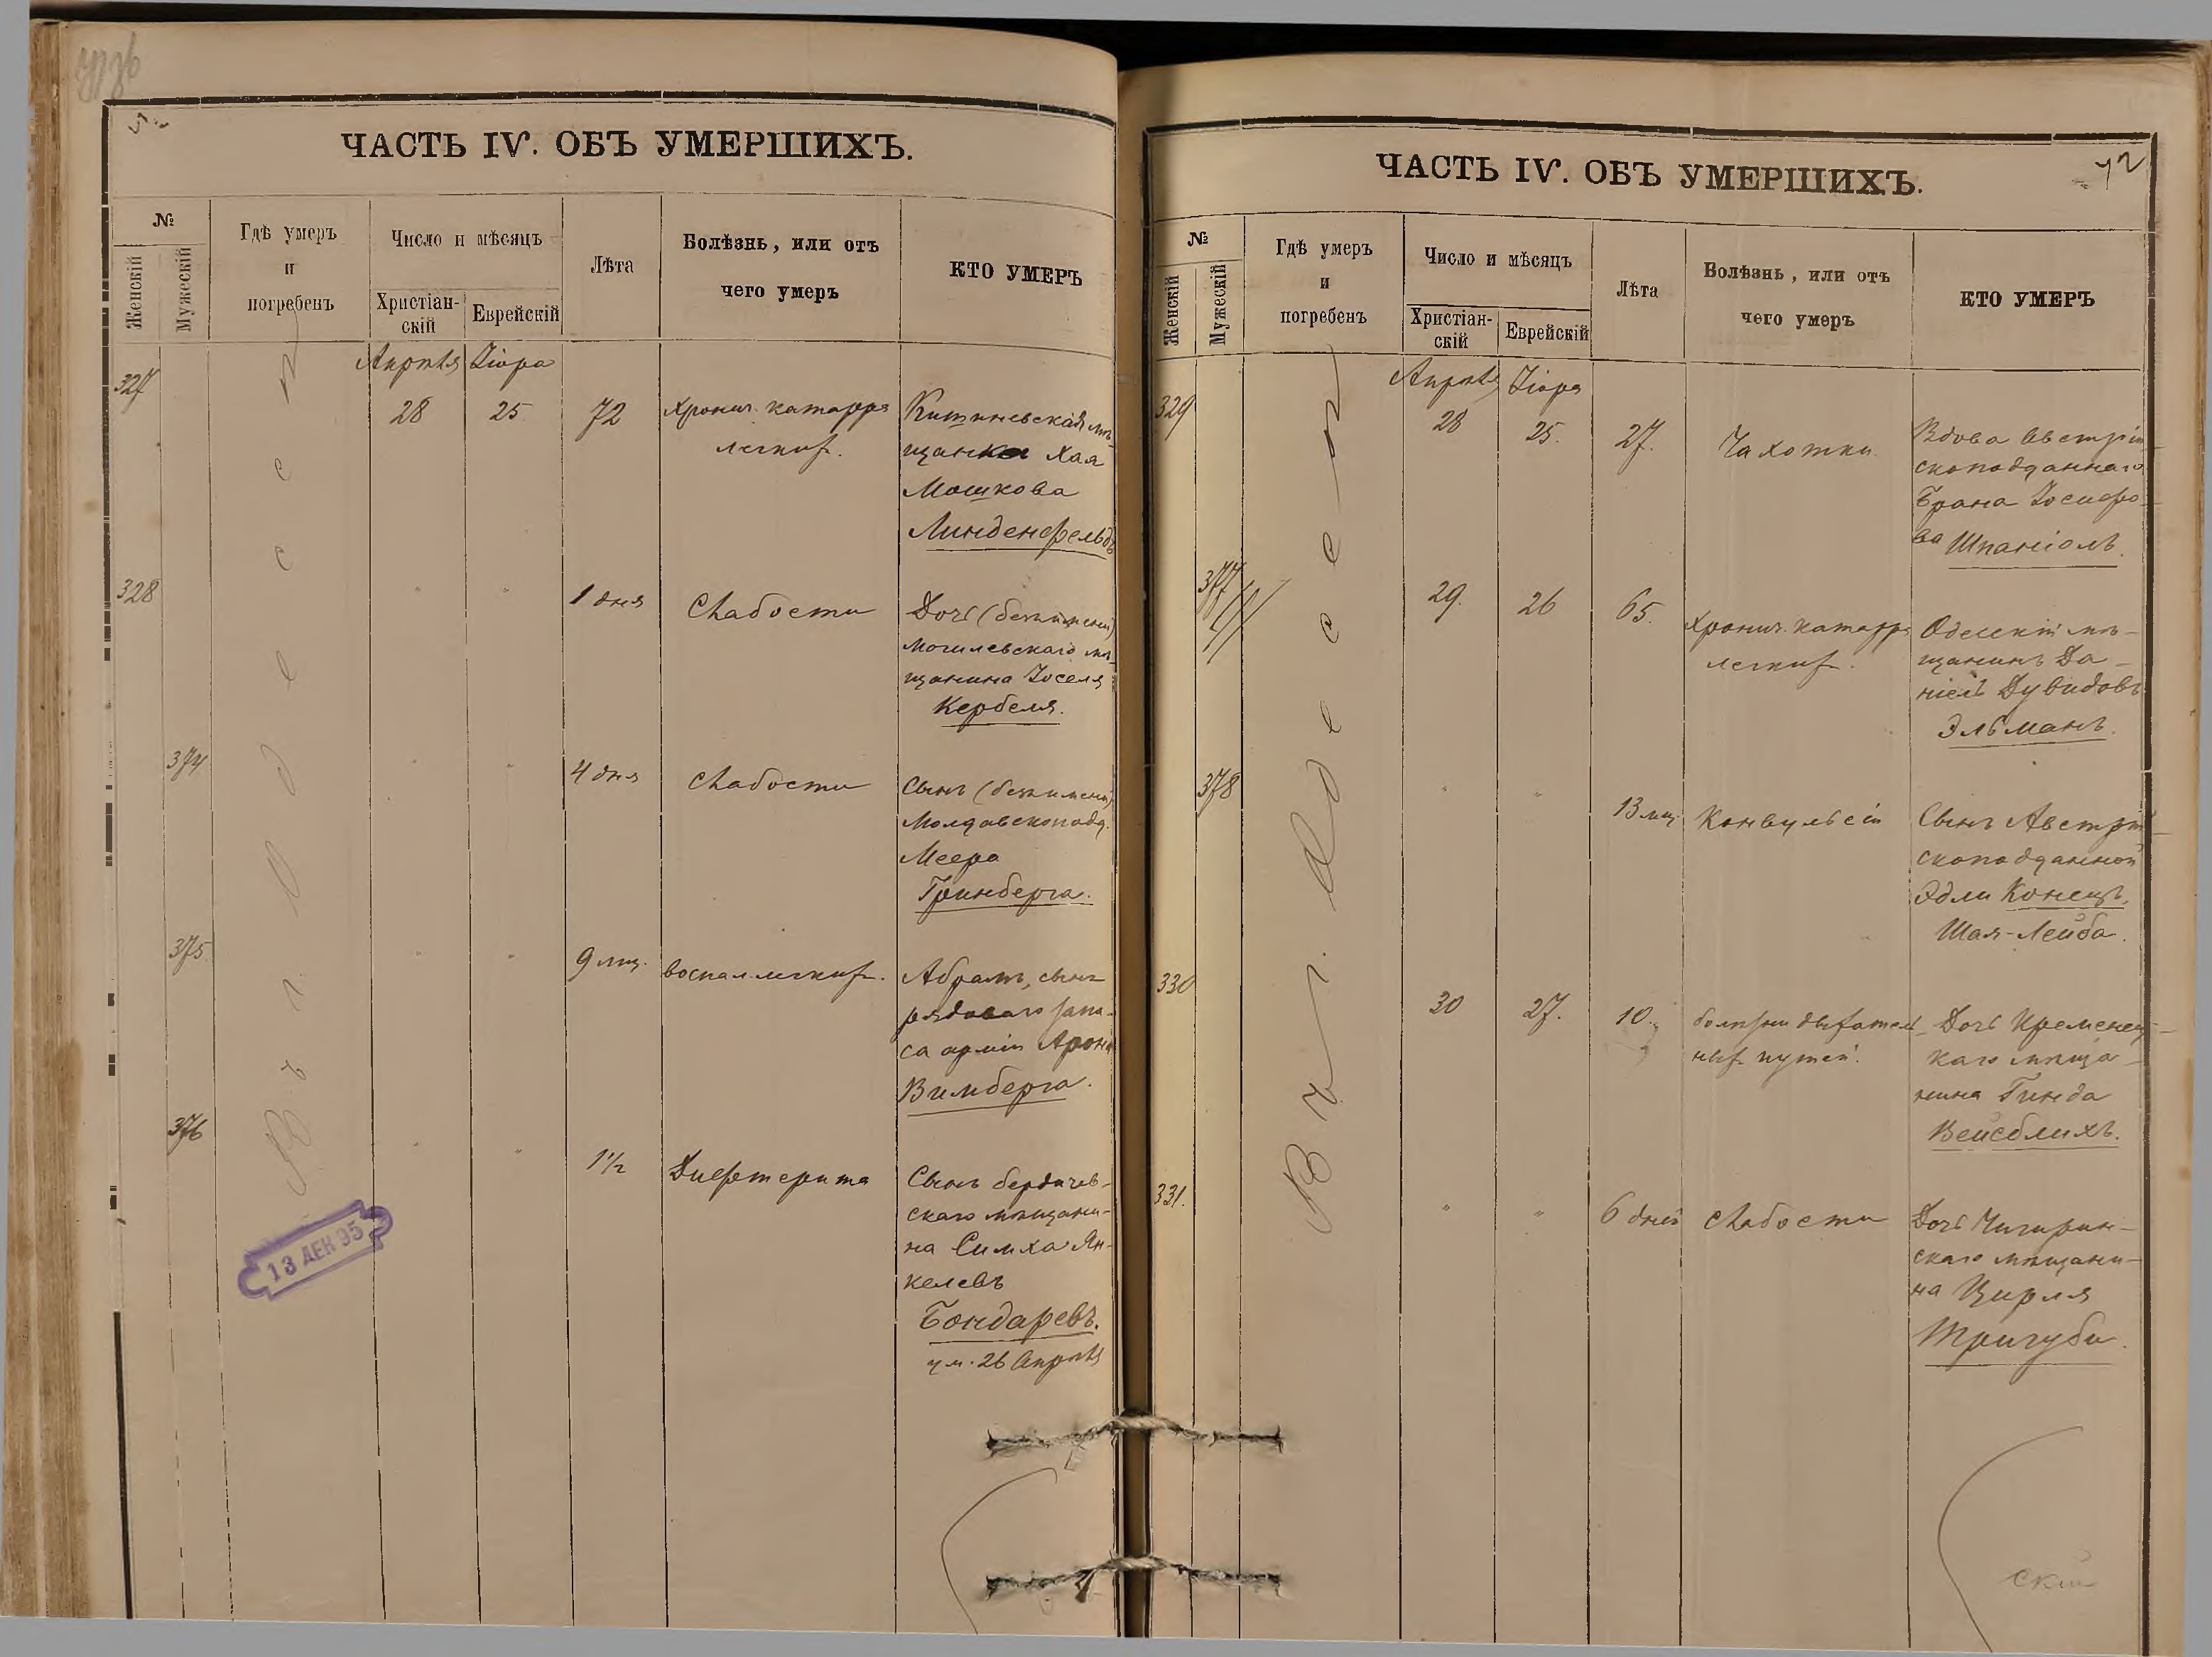 ЧАСТЬ IV. ОБЪ УМЕРШИХЪ.
№
Женскій
Мужескій
Гдѣ умеръ
и
погребенъ
Число и мѣсяцъ
Христіан-
скій
Еврейскій
Лѣта
Болѣзнь, или отъ
чего умеръ
КТО УМЕРЪ
Въ г. Одессѣ
Апрѣля Ііора
327 28 25 72 Хронич. катарра
легкихъ.
Кишиневская мѣ-
щанка Хая
Мошкова
Линденфельдъ
328 " " 1 дня Слабости
Дочь (безъимени)
Могилевскаго мѣ-
щанина Іоселя
Кербеля.
374 " " 4 дня Слабости
Сынъ (безъимени)
Молдавскоподд.
Меера
Гринберга.
375 " " 9 мц. воспал. легкихъ.
Абрамъ, сынъ
рядоваго запа-
са арміи Арона
Вимберга.
376 " " 1½ Дифтерита
Сынъ бердичев-
скаго мѣщани-
на Симха Ян-
келевъ
Бондаревъ.
ум. 26 Апрѣля
13 ДЕК 95
ЧАСТЬ IV. ОБЪ УМЕРШИХЪ.
42
№
Женскій
Мужескій
Гдѣ умеръ
и
погребенъ
Число и мѣсяцъ
Христіан-
скій
Еврейскій
Лѣта
Болѣзнь, или отъ
чего умеръ
КТО УМЕРЪ
Въ г. Одессѣ
Апрѣля Ііора
329 28 25. 27. Чахотки
Вдова Австрій-
скоподданнаго
Брана Іосифо-
ва Шпаніолъ.
377 29. 26 65. Хронич. катарра
легкихъ.
Одесскій мѣ-
щанинъ Да-
ніель Дувидовъ
Эльманъ.
378 " " 13 мц. Конвульсій
Сынъ Австрій-
скоподданной
Эдли Конецъ,
Шая-Лейба.
330 30 27. 10. болѣзни дыхатель-
ныхъ путей.
Дочь Кременец-
каго мѣща-
нина Гинда
Вейсблихъ.
331. " " 6 дней Слабости
Дочь Чигирин-
скаго мѣщани-
на Цирля
Тригуби.
скій